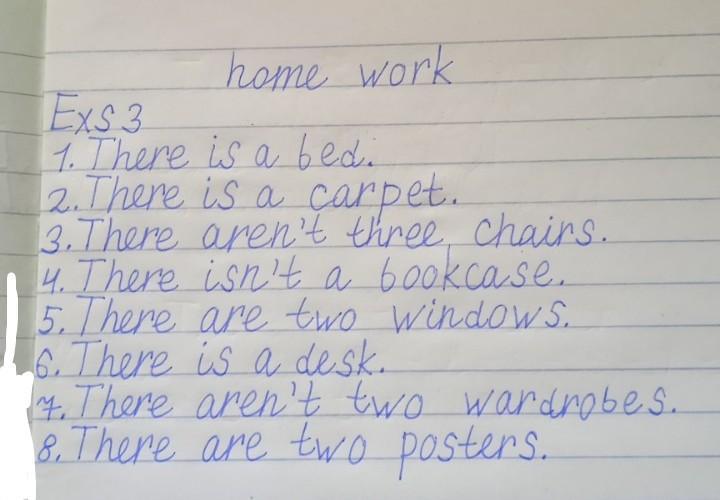 home work
Exs 3
1. There is a bed.
2. There is a carpet.
3. There aren't three chairs.
4. There isn't a bookcase.
5. There are two windows.
6. There is a desk.
7. There aren't two wardrobes.
8. There are two posters.